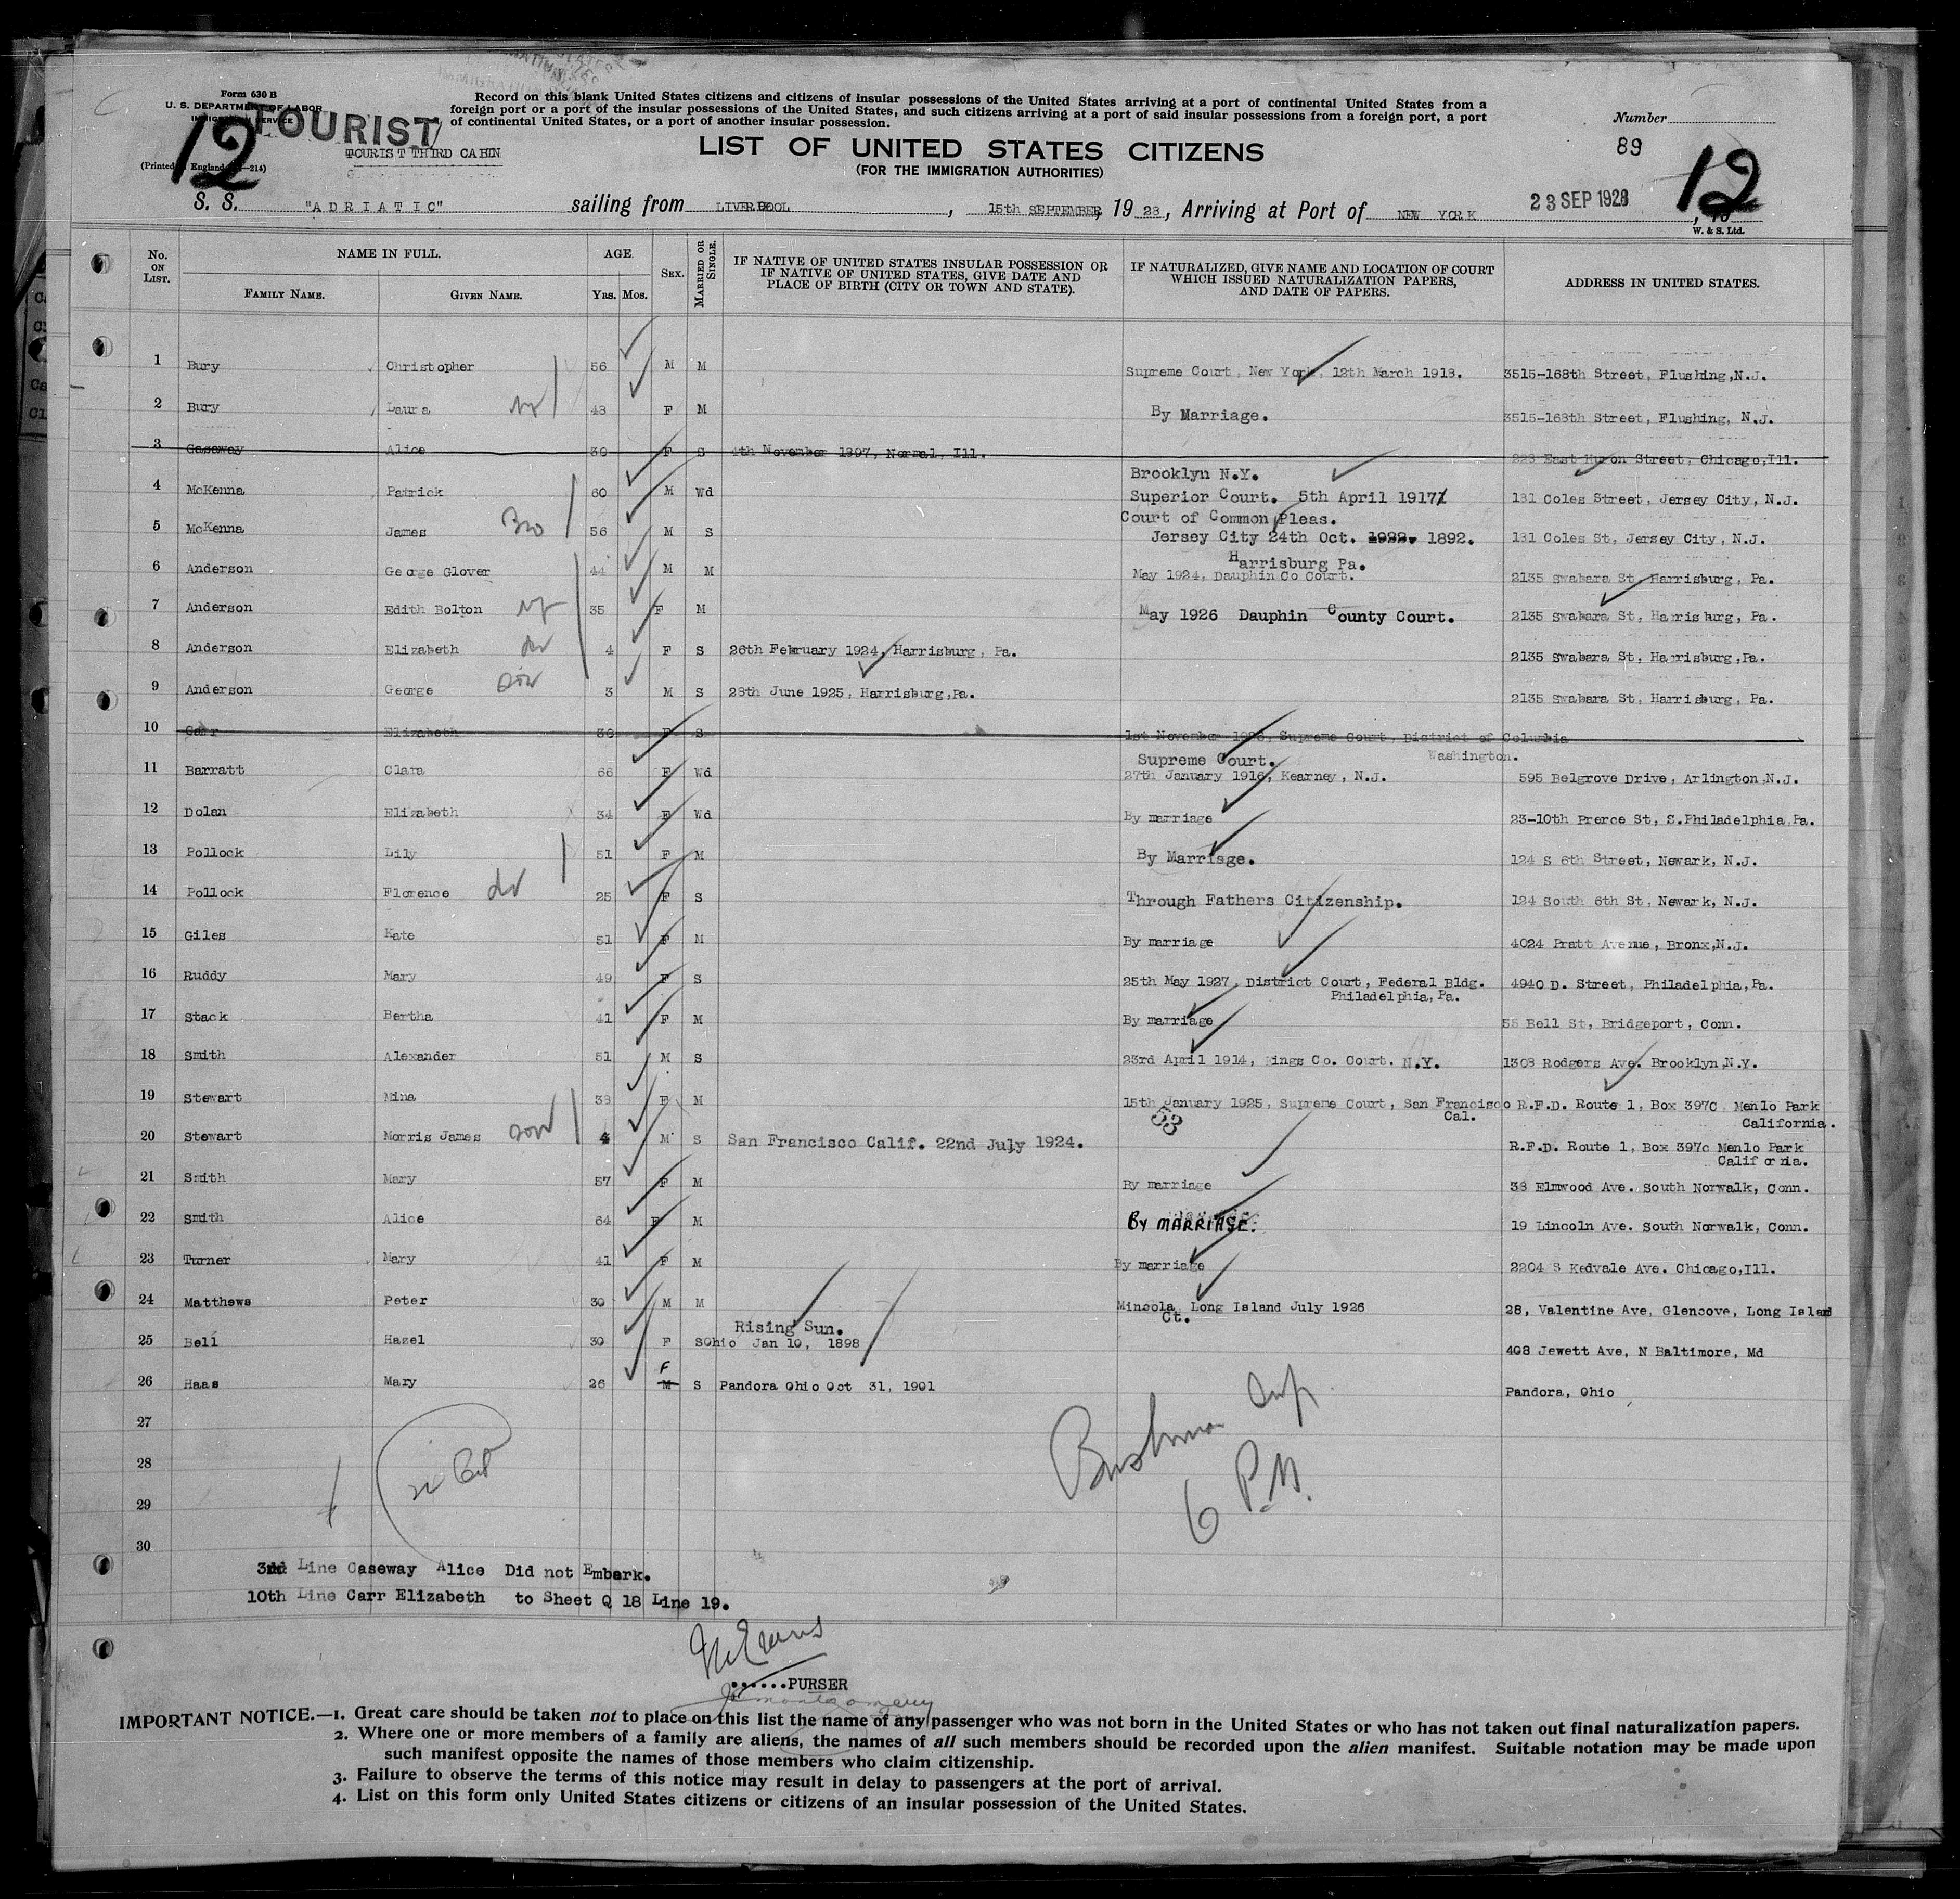 Form 630 B
U. S. DEPARTMENT OF LABOR
IMMIGRATION SERVICE
12
TOURIST
TOURIST THIRD CABIN
Record on this blank United States citizens and citizens of insular possessions of the United States arriving at a port of continental United States from a
foreign port or a port of the insular possessions of the United States, and such citizens arriving at a port of said insular possessions from a foreign port, a port
of continental United States, or a port of another insular possession.
LIST OF UNITED STATES CITIZENS
(FOR THE IMMIGRATION AUTHORITIES)
Number
89
12
S. S. "ADRIATIC" sailing from LIVERPOOL, 15th SEPTEMBER, 1928, Arriving at Port of NEW YORK 23 SEP 1928, 19
W. & S. Ltd.
No. ON LIST. NAME IN FULL. FAMILY NAME. GIVEN NAME. AGE. YRS. MOS. SEX. MARRIED OR SINGLE. IF NATIVE OF UNITED STATES INSULAR POSSESSION OR IF NATIVE OF UNITED STATES, GIVE DATE AND PLACE OF BIRTH (CITY OR TOWN AND STATE). IF NATURALIZED, GIVE NAME AND LOCATION OF COURT WHICH ISSUED NATURALIZATION PAPERS, AND DATE OF PAPERS. ADDRESS IN UNITED STATES.
1 Bury Christopher 56 M M Supreme Court, New York, 12th March 1918. 3515-168th Street, Flushing,N.J.
2 Bury Laura 48 F M By Marriage. 3515-168th Street, Flushing, N.J.
3 Gaseway Alice 30 F S 4th November 1897, Normal, Ill. 228 East Huron Street, Chicago,Ill.
Brooklyn N.Y.
4 McKenna Patrick 60 M Wd Superior Court. 5th April 1917 131 Coles Street, Jersey City, N.J.
Court of Common Pleas.
5 McKenna James Bro 56 M S Jersey City 24th Oct. 1922. 1892. 131 Coles St, Jersey City, N.J.
Harrisburg Pa.
6 Anderson George Glover 44 M M May 1924, Dauphin Co Court. 2135 Swabara St, Harrisburg, Pa.
7 Anderson Edith Bolton 35 F M May 1926 Dauphin County Court. 2135 Swabara St, Harrisburg, Pa.
8 Anderson Elizabeth 4 F S 26th February 1924, Harrisburg, Pa. 2135 Swabara St, Harrisburg,Pa.
9 Anderson George son 3 M S 28th June 1925, Harrisburg,Pa. 2135 Swabara St, Harrisburg, Pa.
10 Carr Elizabeth 36 F S 1st November 1926, Supreme Court, District of Columbia
Washington.
Supreme Court.
11 Barratt Clara 66 F Wd 27th January 1916, Kearney, N.J. 595 Belgrove Drive, Arlington,N.J.
12 Dolan Elizabeth 34 F Wd By marriage 23-10th Prerce St, S.Philadelphia,Pa.
13 Pollock Lily 51 F M By Marriage. 124 S 6th Street, Newark, N.J.
14 Pollock Florence 25 F S Through Fathers Citizenship. 124 South 6th St, Newark, N.J.
15 Giles Kate 51 F M By marriage 4024 Pratt Avenue, Bronx,N.J.
16 Ruddy Mary 49 F S 25th May 1927, District Court, Federal Bldg. 4940 D. Street, Philadelphia,Pa.
Philadelphia,Pa.
17 Stack Bertha 41 F M By marriage 55 Bell St, Bridgeport, Conn.
18 Smith Alexander 51 M S 23rd April 1914, Kings Co. Court. N.Y. 1308 Rodgers Ave. Brooklyn,N.Y.
19 Stewart Mina 38 F M 15th January 1925, Supreme Court, San Francisco R.F.D. Route 1, Box 397C Menlo Park
Cal. California.
53
20 Stewart Morris James son 4 M S San Francisco Calif. 22nd July 1924. R.F.D. Route 1, Box 397C Menlo Park
California.
21 Smith Mary 57 F M By marriage 38 Elmwood Ave. South Norwalk, Conn.
22 Smith Alice 64 F M By MARRIAGE. 19 Lincoln Ave. South Norwalk, Conn.
23 Turner Mary 41 F M By marriage 2204 S Kedvale Ave. Chicago,Ill.
24 Matthews Peter 30 M M Mineola, Long Island July 1926 28, Valentine Ave, Glencove, Long Island
Ct.
Rising Sun.
25 Bell Hazel 30 F S Ohio Jan 10, 1898 408 Jewett Ave, N Baltimore, Md
F
26 Haas Mary 26 M S Pandora Ohio Oct 31, 1901 Pandora, Ohio
27
28
29
30
6 P.M.
3rd Line Caseway Alice Did not Embark.
10th Line Carr Elizabeth to Sheet Q 18 Line 19.
PURSER
IMPORTANT NOTICE.—1. Great care should be taken not to place on this list the name of any passenger who was not born in the United States or who has not taken out final naturalization papers.
2. Where one or more members of a family are aliens, the names of all such members should be recorded upon the alien manifest. Suitable notation may be made upon
such manifest opposite the names of those members who claim citizenship.
3. Failure to observe the terms of this notice may result in delay to passengers at the port of arrival.
4. List on this form only United States citizens or citizens of an insular possession of the United States.